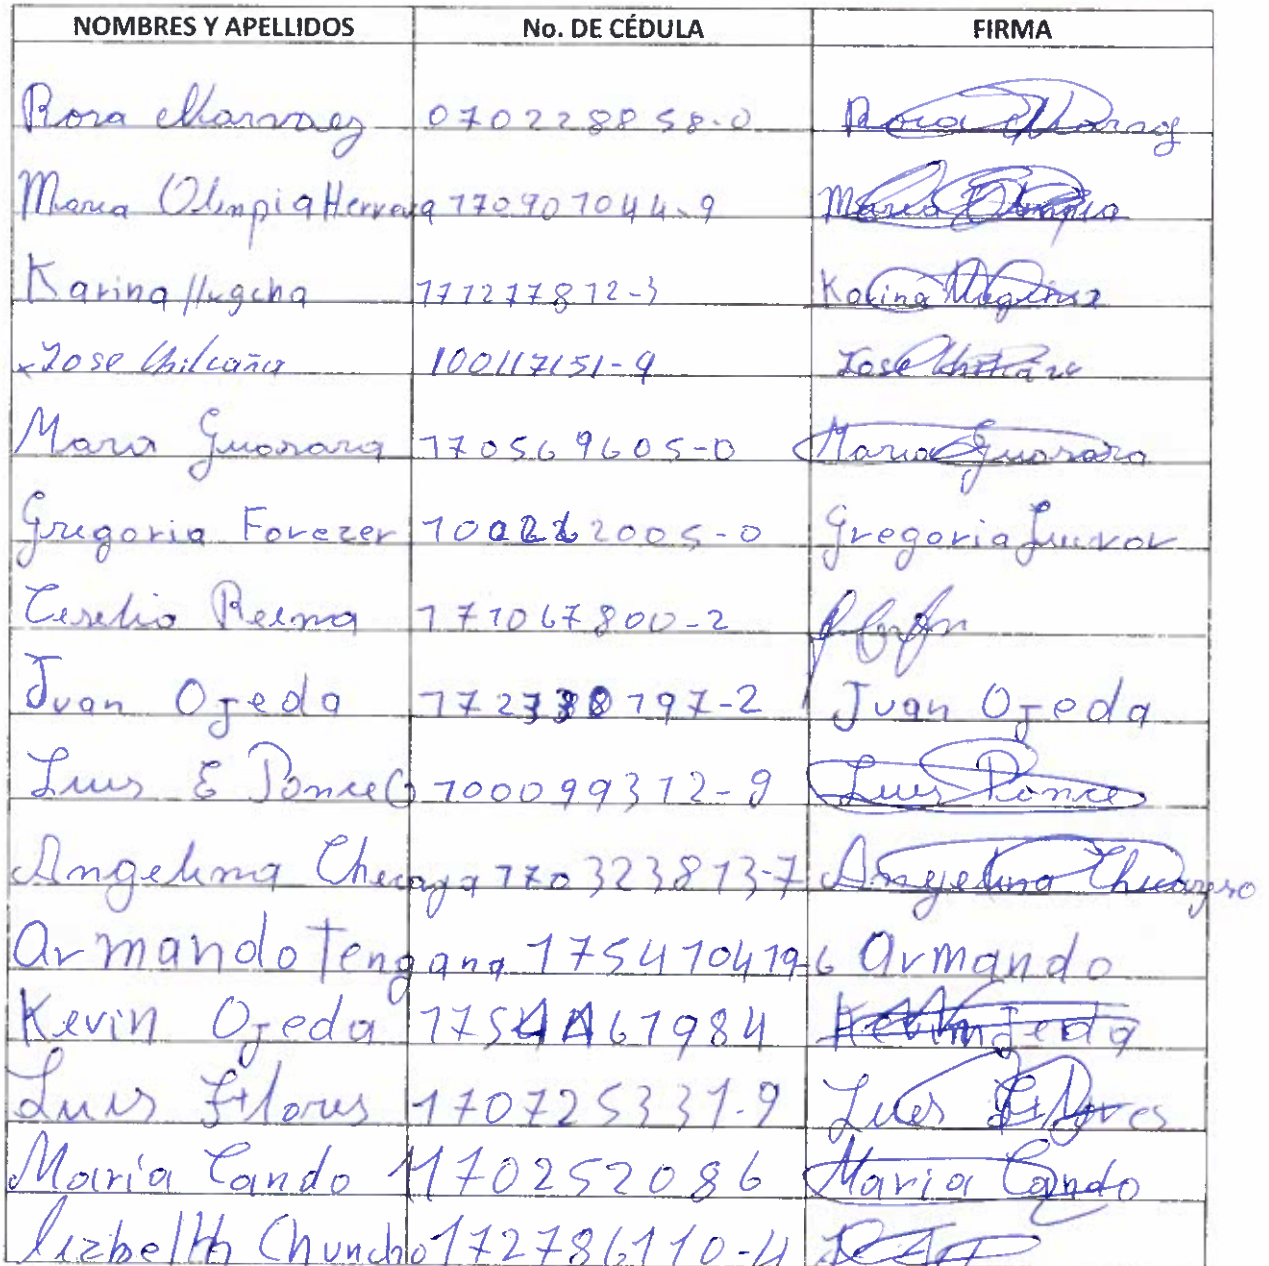 NOMBRES Y APELLIDOS No. DE CÉDULA FIRMA
Rosa Marvaez 070228858-0 Rosa
Maria Olimpia Herrera 170901044-9 Maria Olimpia
Karina 171277812-3 Karina
Jose Chilcaña 100117151-9 Jose
Mara Guarara 170569605-0 Maria Guarara
Gregoria Forezer 2005-0 Gregoria
Reema 171067800-2
Juan Ojeda 797-2 Juan Ojeda
Luis E Ponce 100099312-9 Luis Ponce
Angelina 170323813-7 Angelina
Armando Tengana 175410419-6 Armando
Kevin Ojeda 61984
Luis Flores 170725331-9 Luis Flores
María Cando 170252086 Maria Cando
Lizbelth Chuncho 172786110-4